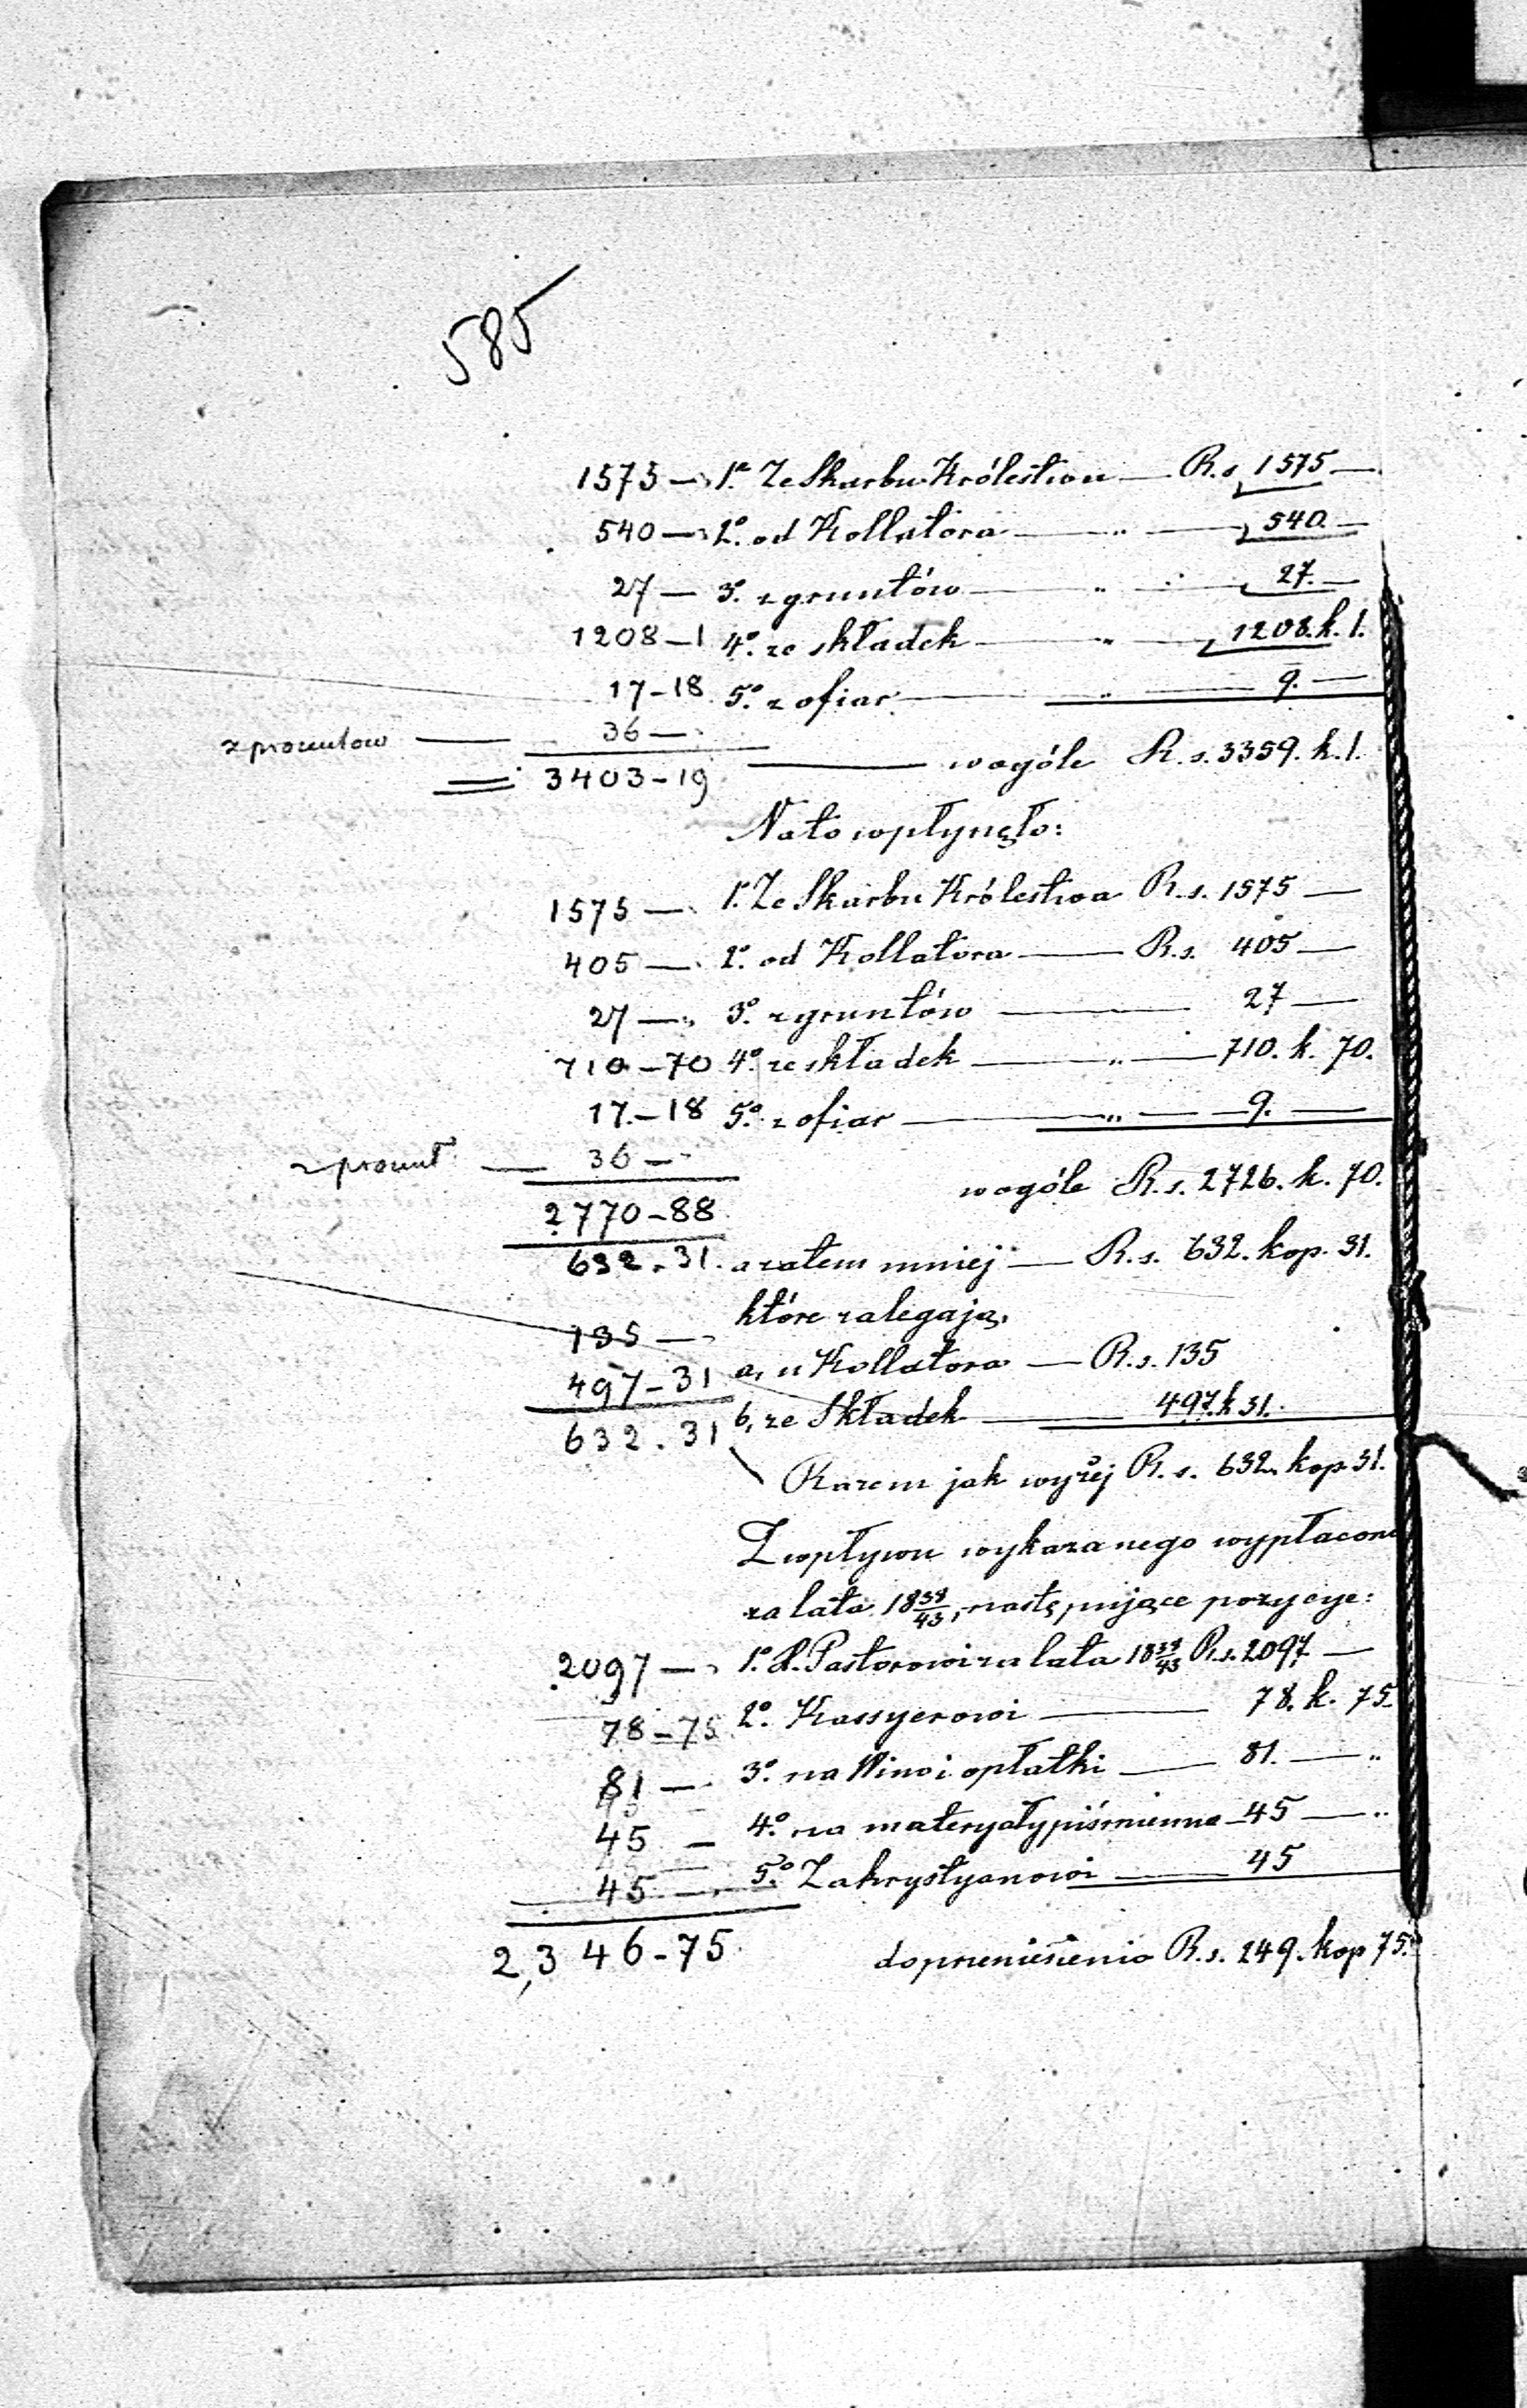 585
1575 — " 1° Ze Skarbu Królestwa — R.s. 1575 —
540 — " 2° od Kollatora — " — 540. —
27 — 3° z gruntów — " — 27. —
1208 — 1 4° ze składek — " — 1208. k. 1.
17 — 18 5° z ofiar — " — 9. —
z procentow — 36 — "
3403 — 19 — wogóle R.s. 3359. k. 1.
Nato wpłynęło:
1575 — " 1° Ze Skarbu Królestwa R.s. 1575 —
405 — " 2° od Kollatora — R.s. 405 —
27 — " 3° z gruntów — 27 —
710 — 70 4° ze składek — " — 710. k. 70.
17. — 18 5° z ofiar — " — 9. —
z procent — 36 — "
2770 — 88 wogóle R.s. 2726. k. 70.
632 . 31. a zatem mniej — R.s. 632. kop. 31.
które zalegają.
135 — " a, u Kollatora — R.s. 135
497 — 31 b, ze Składek — 497. k 31.
632 . 31 Razem jak wyżej R.s. 632. kop 31.
Z wpływu wykazanego wypłacono
za lata 18 38/43, następujące pozycye:
2097 — " 1° X. Pastorowi za lata 18 38/43 R.s. 2097 —
78 — 75 2° Kassyerowi — 78. k. 75.
81 — " 3° na Wino i opłatki — 81. — "
45 — 4° na materyały piśmienne — 45 — "
45 — " 5° Zakrystyanowi — 45
2,346 — 75 do przeniesienia R.s. 249. kop 75.